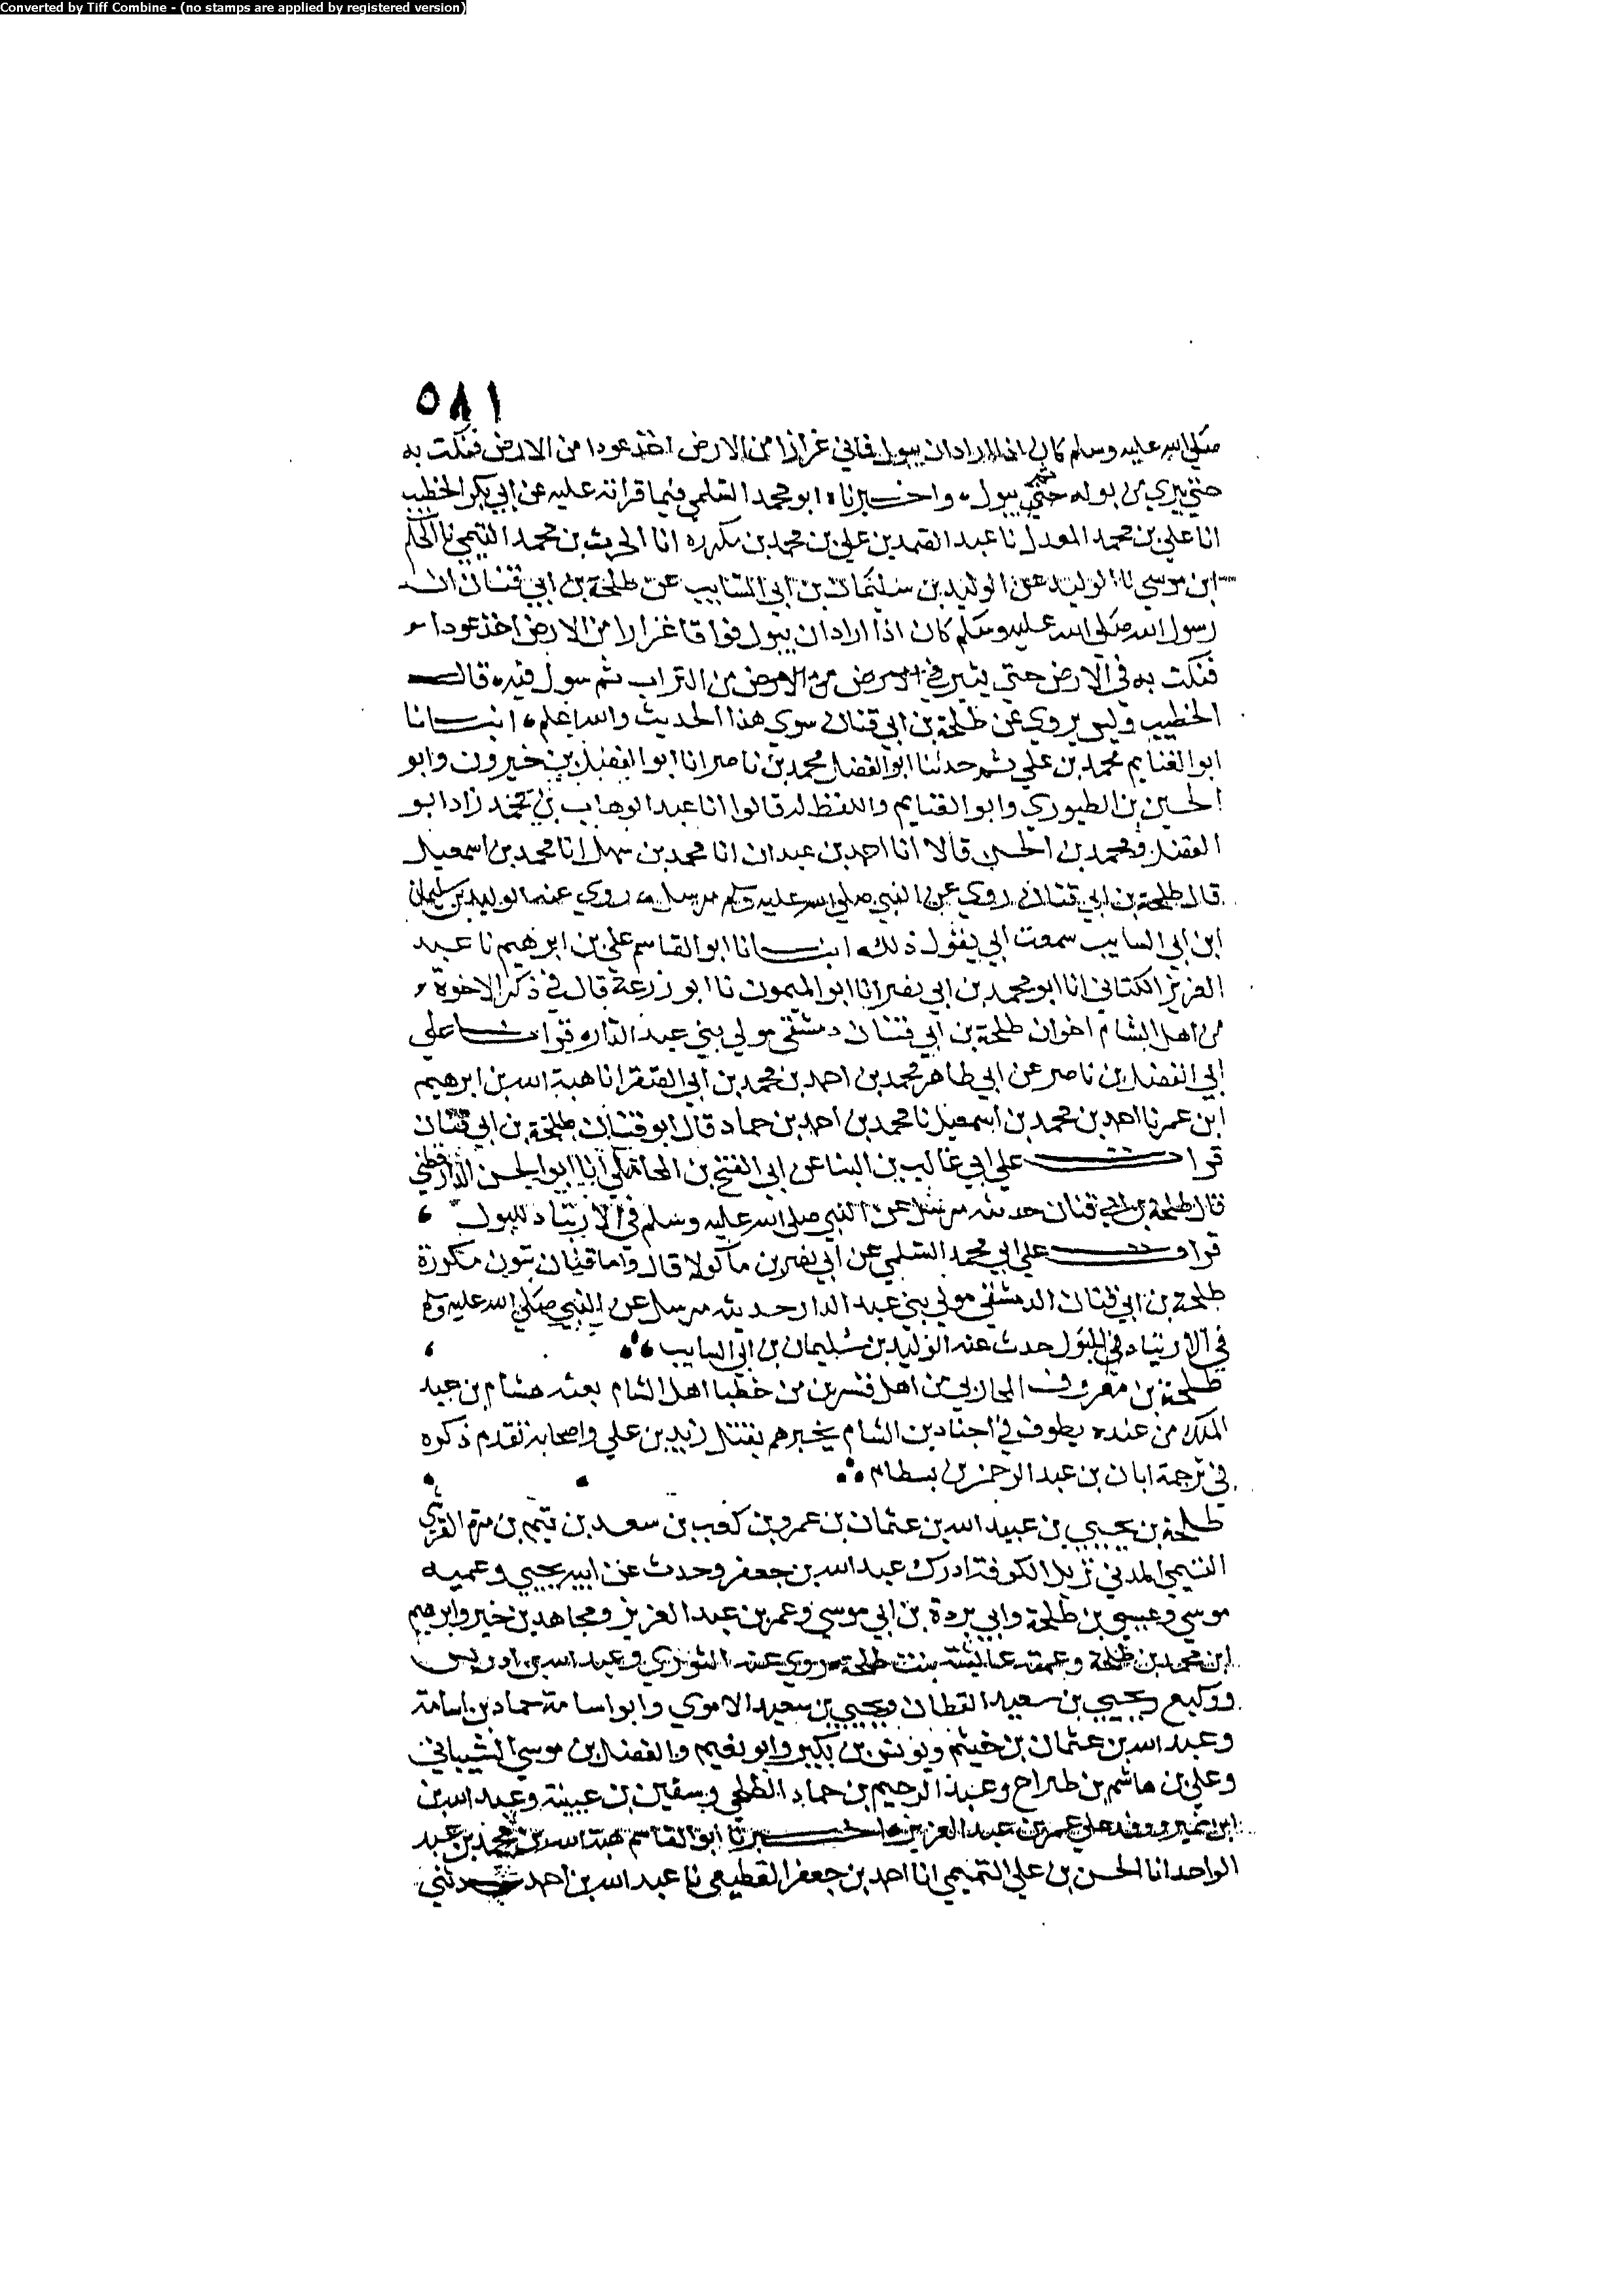 Converted by Tiff Combine - (no stamps are applied by registered version)
٥٨١
صلى الله عليه وسلم كان اذا اراد ان يبول فاتى عزازا من الارض اخذ عودا من الارض فنكت به
حتى يثرى من بوله ثم يبول واخبرناه ابو محمد السلمي فيما قراته عليه عن ابي بكر الخطيب
انا علي بن محمد المعدل نا عبد الصمد بن علي بن محمد بن مكرم انا الحرث بن محمد التيمي نا الحكم
ابن موسي نا الوليد عن الوليد بن سليمان بن ابي السايب عن طلحة بن ابي قنان ان
رسول الله صلى الله عليه وسلم كان اذا اراد ان يبول فوافا عزازا من الارض اخذ عودا
فنكت به في الارض حتى يثير في الارض من الارض من التراب ثم يبول فيه قال
الخطيب وليس يروي عن طلحة بن ابي قنان سوي هذا الحديث والله اعلم انبانا
ابو الغنايم محمد بن علي ثم حدثنا ابو الفضل محمد بن ناصر انا ابو الفضل بن خيرون وابو
الحسين بن الطيوري وابو الغنايم واللفظ له قالوا انا عبد الوهاب بن محمد زاد ابو
الفضل ومحمد بن الحسن قالا انا احمد بن عبدان انا محمد بن سهل انا محمد بن اسمعيل
قال طلحة بن ابي قنان روي عن النبي صلى الله عليه وسلم مرسل روي عنه الوليد بن سليمان
ابن ابي السايب سمعت ابي يقول ذلك انبانا ابو القاسم علي بن ابرهيم نا عبد
العزيز الكتاني انا ابو محمد بن ابي نصر انا ابو الميمون نا ابو زرعة قال في ذكر الاخوة
من اهل الشام اخوان طلحة بن ابي قنان دمشقي مولي بني عبد الدار قرات علي
ابي الفضل بن ناصر عن ابي طاهر محمد بن احمد بن محمد بن ابي الصقر انا هبة الله بن ابرهيم
ابن عمر نا احمد بن محمد بن اسمعيل نا محمد بن احمد بن حماد قال ابو قنان طلحة بن ابي قنان
قرات علي ابي غالب بن البنا عن ابي الفتح بن المحاملي انا ابو الحسن الدارقطني
قال طلحة بن ابي قنان حديثه مرسل عن النبي صلى الله عليه وسلم في الارتياد للبول
قرات علي ابي محمد السلمي عن ابي نصر بن ماكولا قال واما قنان بنون مكررة
طلحة بن ابي قنان الدمشقي مولي بني عبد الدار حديثه مرسل عن النبي صلى الله عليه وسلم
في الارتياد في البول حدث عنه الوليد بن سليمان بن ابي السايب
طلحة بن معروف المحاربي من اهل قنسرين من خطبا اهل الشام بعثه هشام بن عبد
الملك من عنده يطوف في اجناد بن الشام يخبرهم بقتل زيد بن علي واصحابه تقدم ذكره
في ترجمة ابان بن عبد الرحمن بن بسطام
طلحة بن يحيي بن عبيد الله بن عثمان بن عمرو بن كعب بن سعد بن تيم بن مرة القرشي
التيمي المدني نزيل الكوفة ادرك عبد الله بن جعفر وحدث عن ابيه يحيي وعميه
موسي وعيسي بن طلحة وابي بردة بن ابي موسي وعمر بن عبد العزيز ومجاهد بن خبر وابرهيم
ابن محمد بن طلحة وعمته عايشة بنت طلحة روي عنه الثوري وعبد الله بن ادريس
ووكيع ويحيي بن سعيد القطان ويحيي بن سعيد الاموي وابو اسامة حماد بن اسامة
وعبد الله بن عثمان بن خيثم ويونس بن بكير وابو نعيم والفضل بن موسي الشيباني
وعلي بن هاشم بن طراح وعبد الرحيم بن حماد الطلحي وسفين بن عيينة وعبد الله بن
ابن نمير ووفد علي عمر بن عبد العزيز اخبرنا ابو القاسم هبة الله بن محمد بن عبد
الواحد انا الحسن بن علي التميمي انا احمد بن جعفر القطيعي نا عبد الله بن احمد حدثني